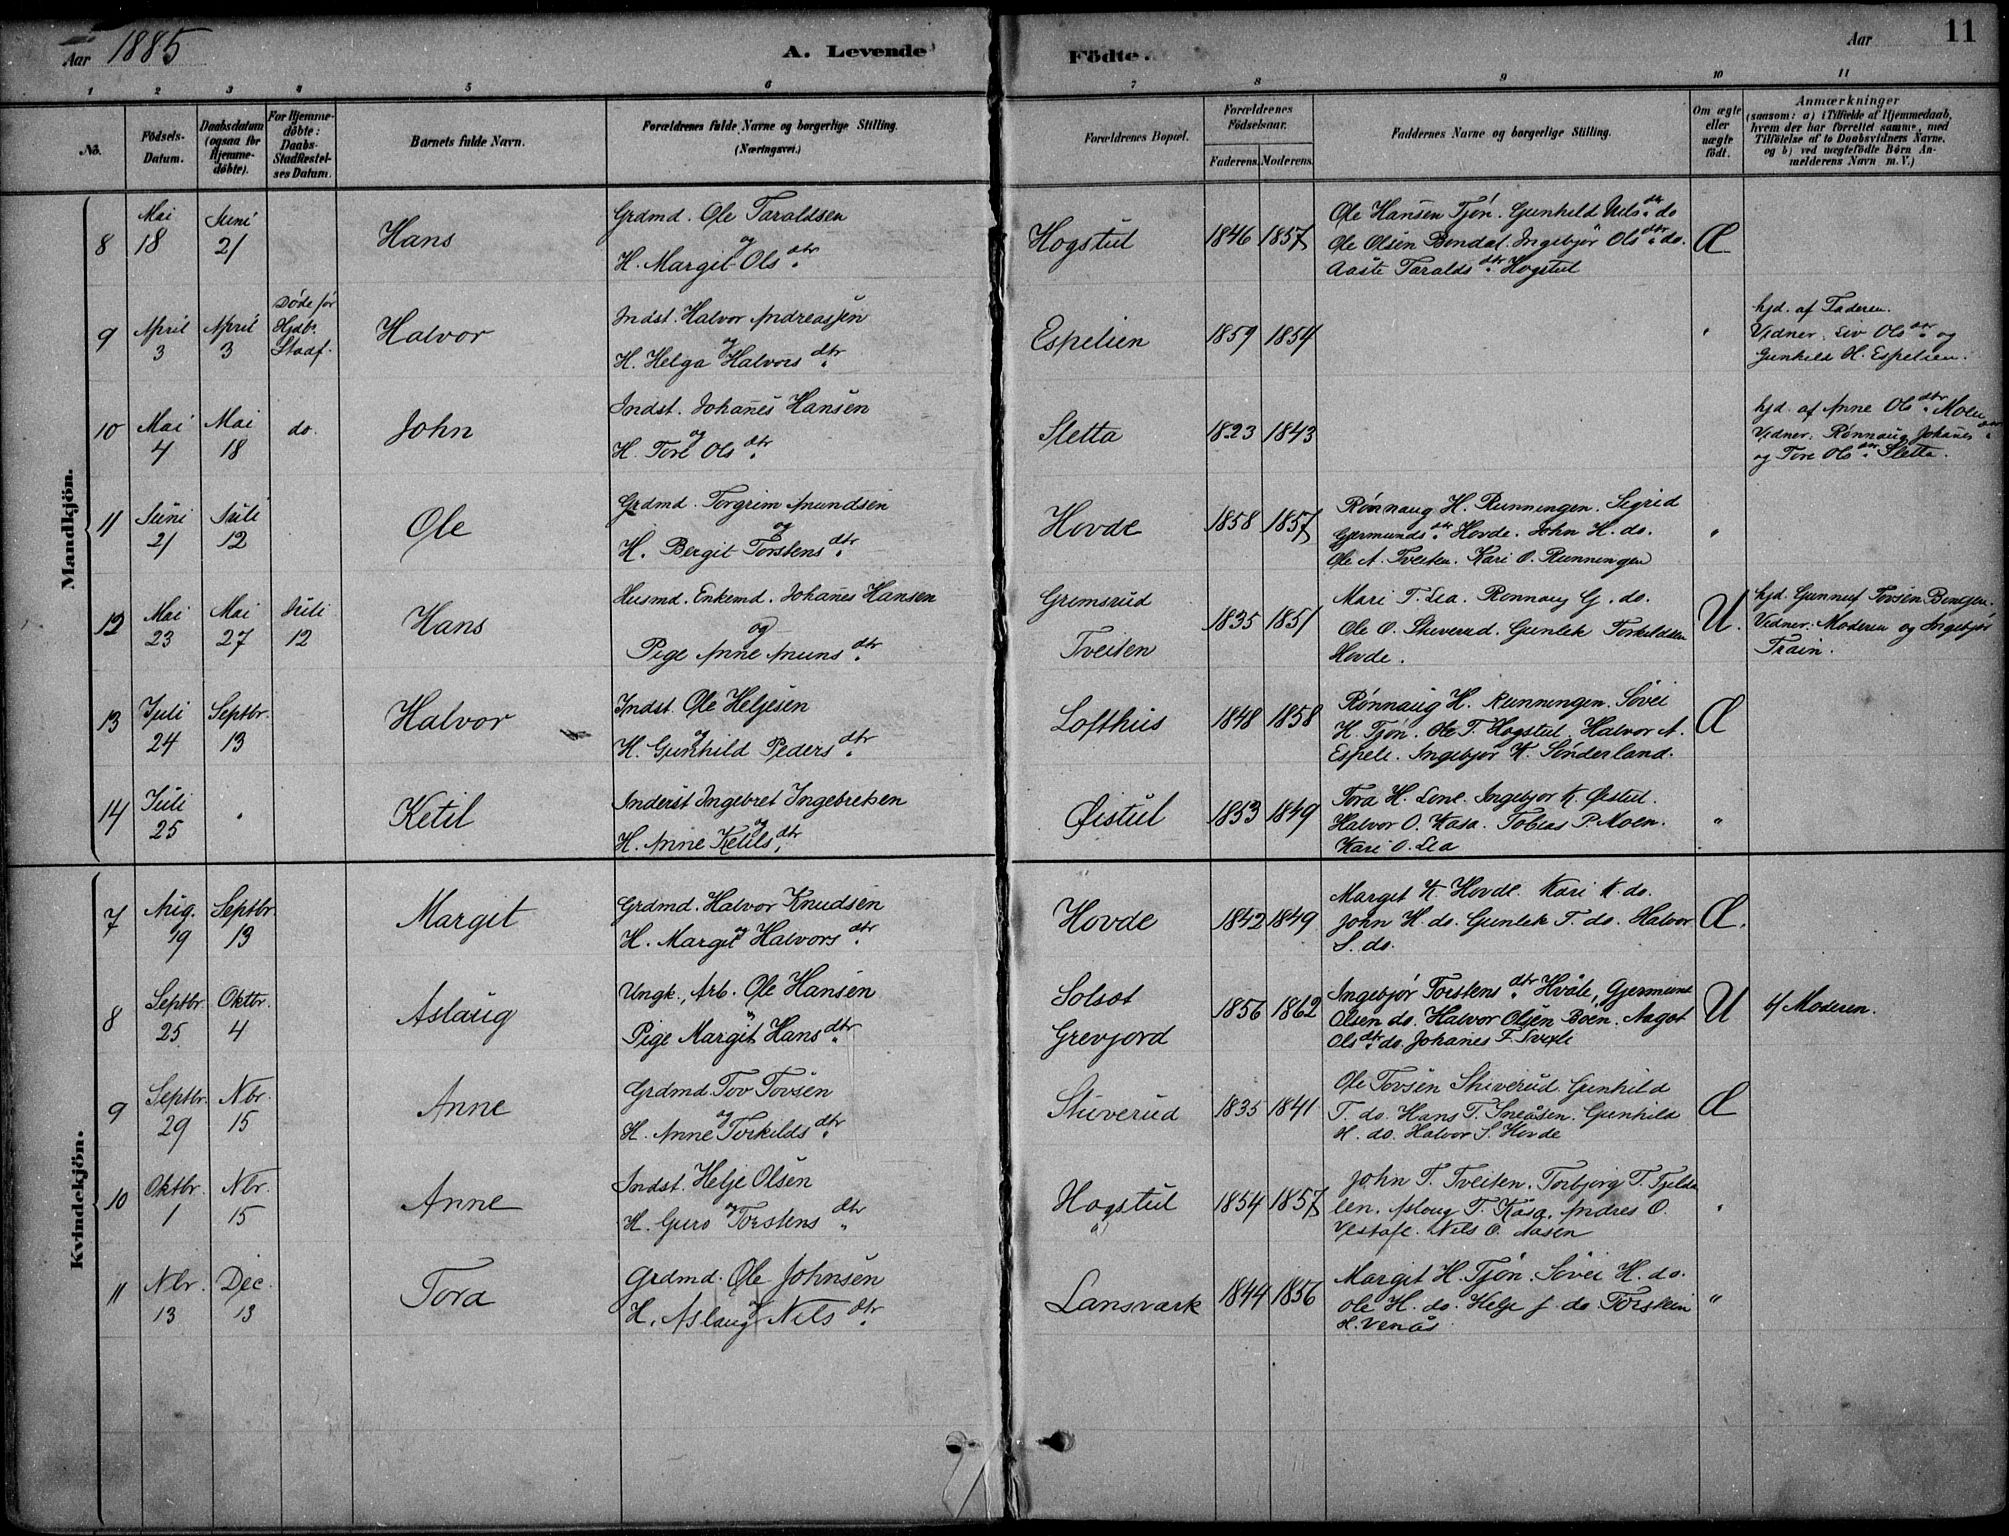 Aar 1885
A. Levende
Födte.
Aar
11
1 2 3 4 5 6 7 8 9 10 11
No.
Födsels-
Datum.
Daabsdatum
(ogsaa for
Hjemme-
döbte).
For Hjemme-
döbte:
Daabs-
Stadfæstel-
ses Datum.
Barnets fulde Navn.
Forældrenes fulde Navne og borgerlige Stilling.
(Næringsvei.)
Forældrenes Bopæl.
Forældrenes
Födselsaar.
Faderens. Moderens.
Faddernes Navne og borgerlige Stilling.
Om ægte
eller
uægte
födt.
Anmærkninger
(saasom: a) i Tilfælde af Hjemmedaab,
hvem der har forrettet samme, med
Tilföielse af to Daabsvidners Navne,
og b) ved uægtefödte Börn An-
melderens Navn m. V.)
Mandkjön.
8 Mai 18 Juni 21 Hans
Grdmd. Ole Taraldsen
og
H. Margit Olsdtr.
Hogstul 1846 1857
Ole Hansen Tjøn. Gunhild Nilsdtr. do
Ole Olsen Bendal. Ingebjør Olsdtr. do.
Aaste Taraldsdtr. Hogstul
Æ
9 April 3 April 3 Døde før Hjdb. Stadf. Halvor
Indst. Halvor Andreassen
og
H. Helga Halvorsdtr.
Espelien 1859 1854
"
hjd. af Faderen.
Vidner: Liv Olsdtr. og
Gunhild H. Espelien.
10 Mai 4 Mai 18 do. John
Indst. Johanes Hansen
og
H. Tore Olsdtr.
Sletta 1823 1843
hjd. af Anne Olsdtr. Moen
Vidner: Rønnaug Johanesdtr.
og Tore Olsdtr. Sletta.
11 Juni 21 Juli 12 Ole
Grdmd. Torgrim Amundsen
og
H. Bergit Torstensdtr.
Hovde 1858 1857
Rønnaug H. Runningen. Sigrid
Gjermundsdtr. Hovde. John H. do.
Ole A. Tveiten. Kari O. Runningen
"
12 Mai 23 Mai 27 Juli 12 Hans
Husmd. Enkemd. Johanes Hansen
og
Pige Anne Amunsdtr.
Gremsrud
Tveiten
1835 1851
Mari T. Lia. Ronnaug G. do.
Ole O. Stuverud. Gunlek Torkildsen
Hovde.
U.
hjd. Gunnuf Tovsen Bengen.
Vidner: Moderen og Ingebjør
Train.
13 Juli 24 Septbr. 13 Halvor
Indst. Ole Heljesen
og
H. Gunhild Pedersdtr.
Lofthus 1848 1858
Rønnaug H. Runningen. Søvei
H. Tjøn. Ole T. Hogstul. Halvor A.
Espeli. Ingebjør K. Sønderland.
Æ
14 Juli 25 " Ketil
Inderst Ingebret Ingebretsen
og
H. Anne Ketilsdtr.
Øistul 1853 1849
Tora H. Lone. Ingebjor K. Øistul.
Halvor O. Kasa. Tobias P. Moen.
Kari O. Lia
"
Kvindekjön.
7 Aug. 19 Septbr. 13 Margit
Grdmd. Halvor Knudsen
og
H. Margit Halvorsdtr.
Hovde 1842 1849
Margit K. Hovde. Kari K. do.
John H. do. Gunlek T. do. Halvor
S. do.
Æ.
8 Septbr. 25 Oktbr. 4 Aslaug
Ungk., Arb. Ole Hansen
Pige Margit Hansdtr.
Solsot
Grevjord
1856 1862
Ingebjør Torstensdtr. Hvåle, Gjermund
Olsen do. Halvor Olsen Boen. Aagot
Olsdtr. do. Johanes T.
U
Moderen.
9 Septbr. 29 Nbr. 15 Anne
Grdmd. Tov Tovsen
og
H. Anne Torkildsdtr.
Stuverud 1835 1841
Ole Tovsen Stuverud. Gunhild
T. do. Hans T. Sneåsen. Gunhild
H. do. Halvor S. Hovde
Æ
10 Oktbr. 1 Nbr. 15 Anne
Indst. Helje Olsen
og
H. Guro Torstensdtr.
Hogstul 1854 1857
John T. Tveiten. Torbjorg T. Fjelda-
len. Aslaug T. Kåsa. Andres O.
Vestafe. Nils O. Aasen
"
11 Nbr. 13 Dec. 13 Tora
Grdmd. Ole Johnsen
og
H. Aslaug Nilsdtr.
Lansværk 1844 1856
Margit H. Tjøn. Søvei H. do.
Ole H. do. Helje J. do. Torstein
H. Venås
"